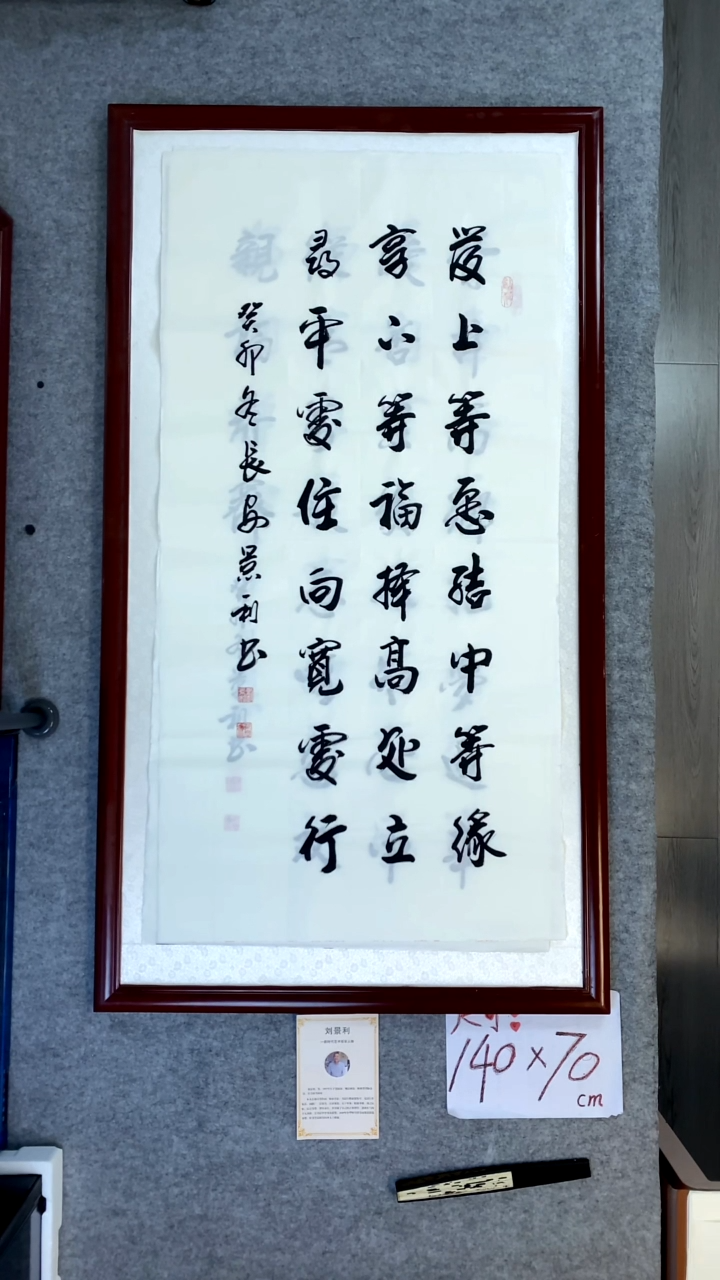 发上等愿结中等缘
享下等福择高处立
寻平处住向宽处行
癸卯冬长安景利书
刘景利
140×70
cm